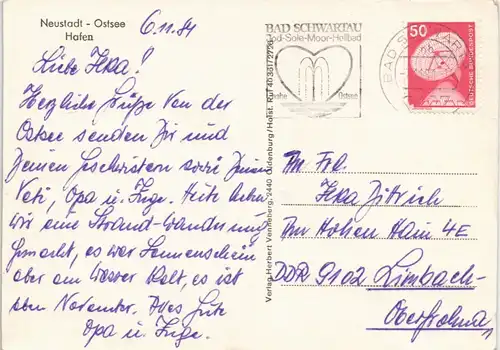 Neustadt - Ostsee
Hafen
6.11.81
Liebe Ilka!
Herzliche Grüße von der
Ostsee senden Dir und
Deinen Geschwistern sowie Deinem
Vati, Opa u. Inge. Heute haben
wir eine Strand-Wanderung
gemacht, es war Sonnenschein
aber am Wasser kalt, es ist
eben November. Alles Gute
Opa u. Inge.
BAD SCHWARTAU
Jod-Sole-Moor-Heilbad
nahe Ostsee
Verlag Herbert Venneberg, 2440 Oldenburg/Holst. Ruf 04361/2726
BAD SCHWARTAU
50
DEUTSCHE BUNDESPOST
An Frl.
Ilka Dittrich
Am Hohen Hain 4E
DDR 9102 Limbach-
Oberfrohna 1